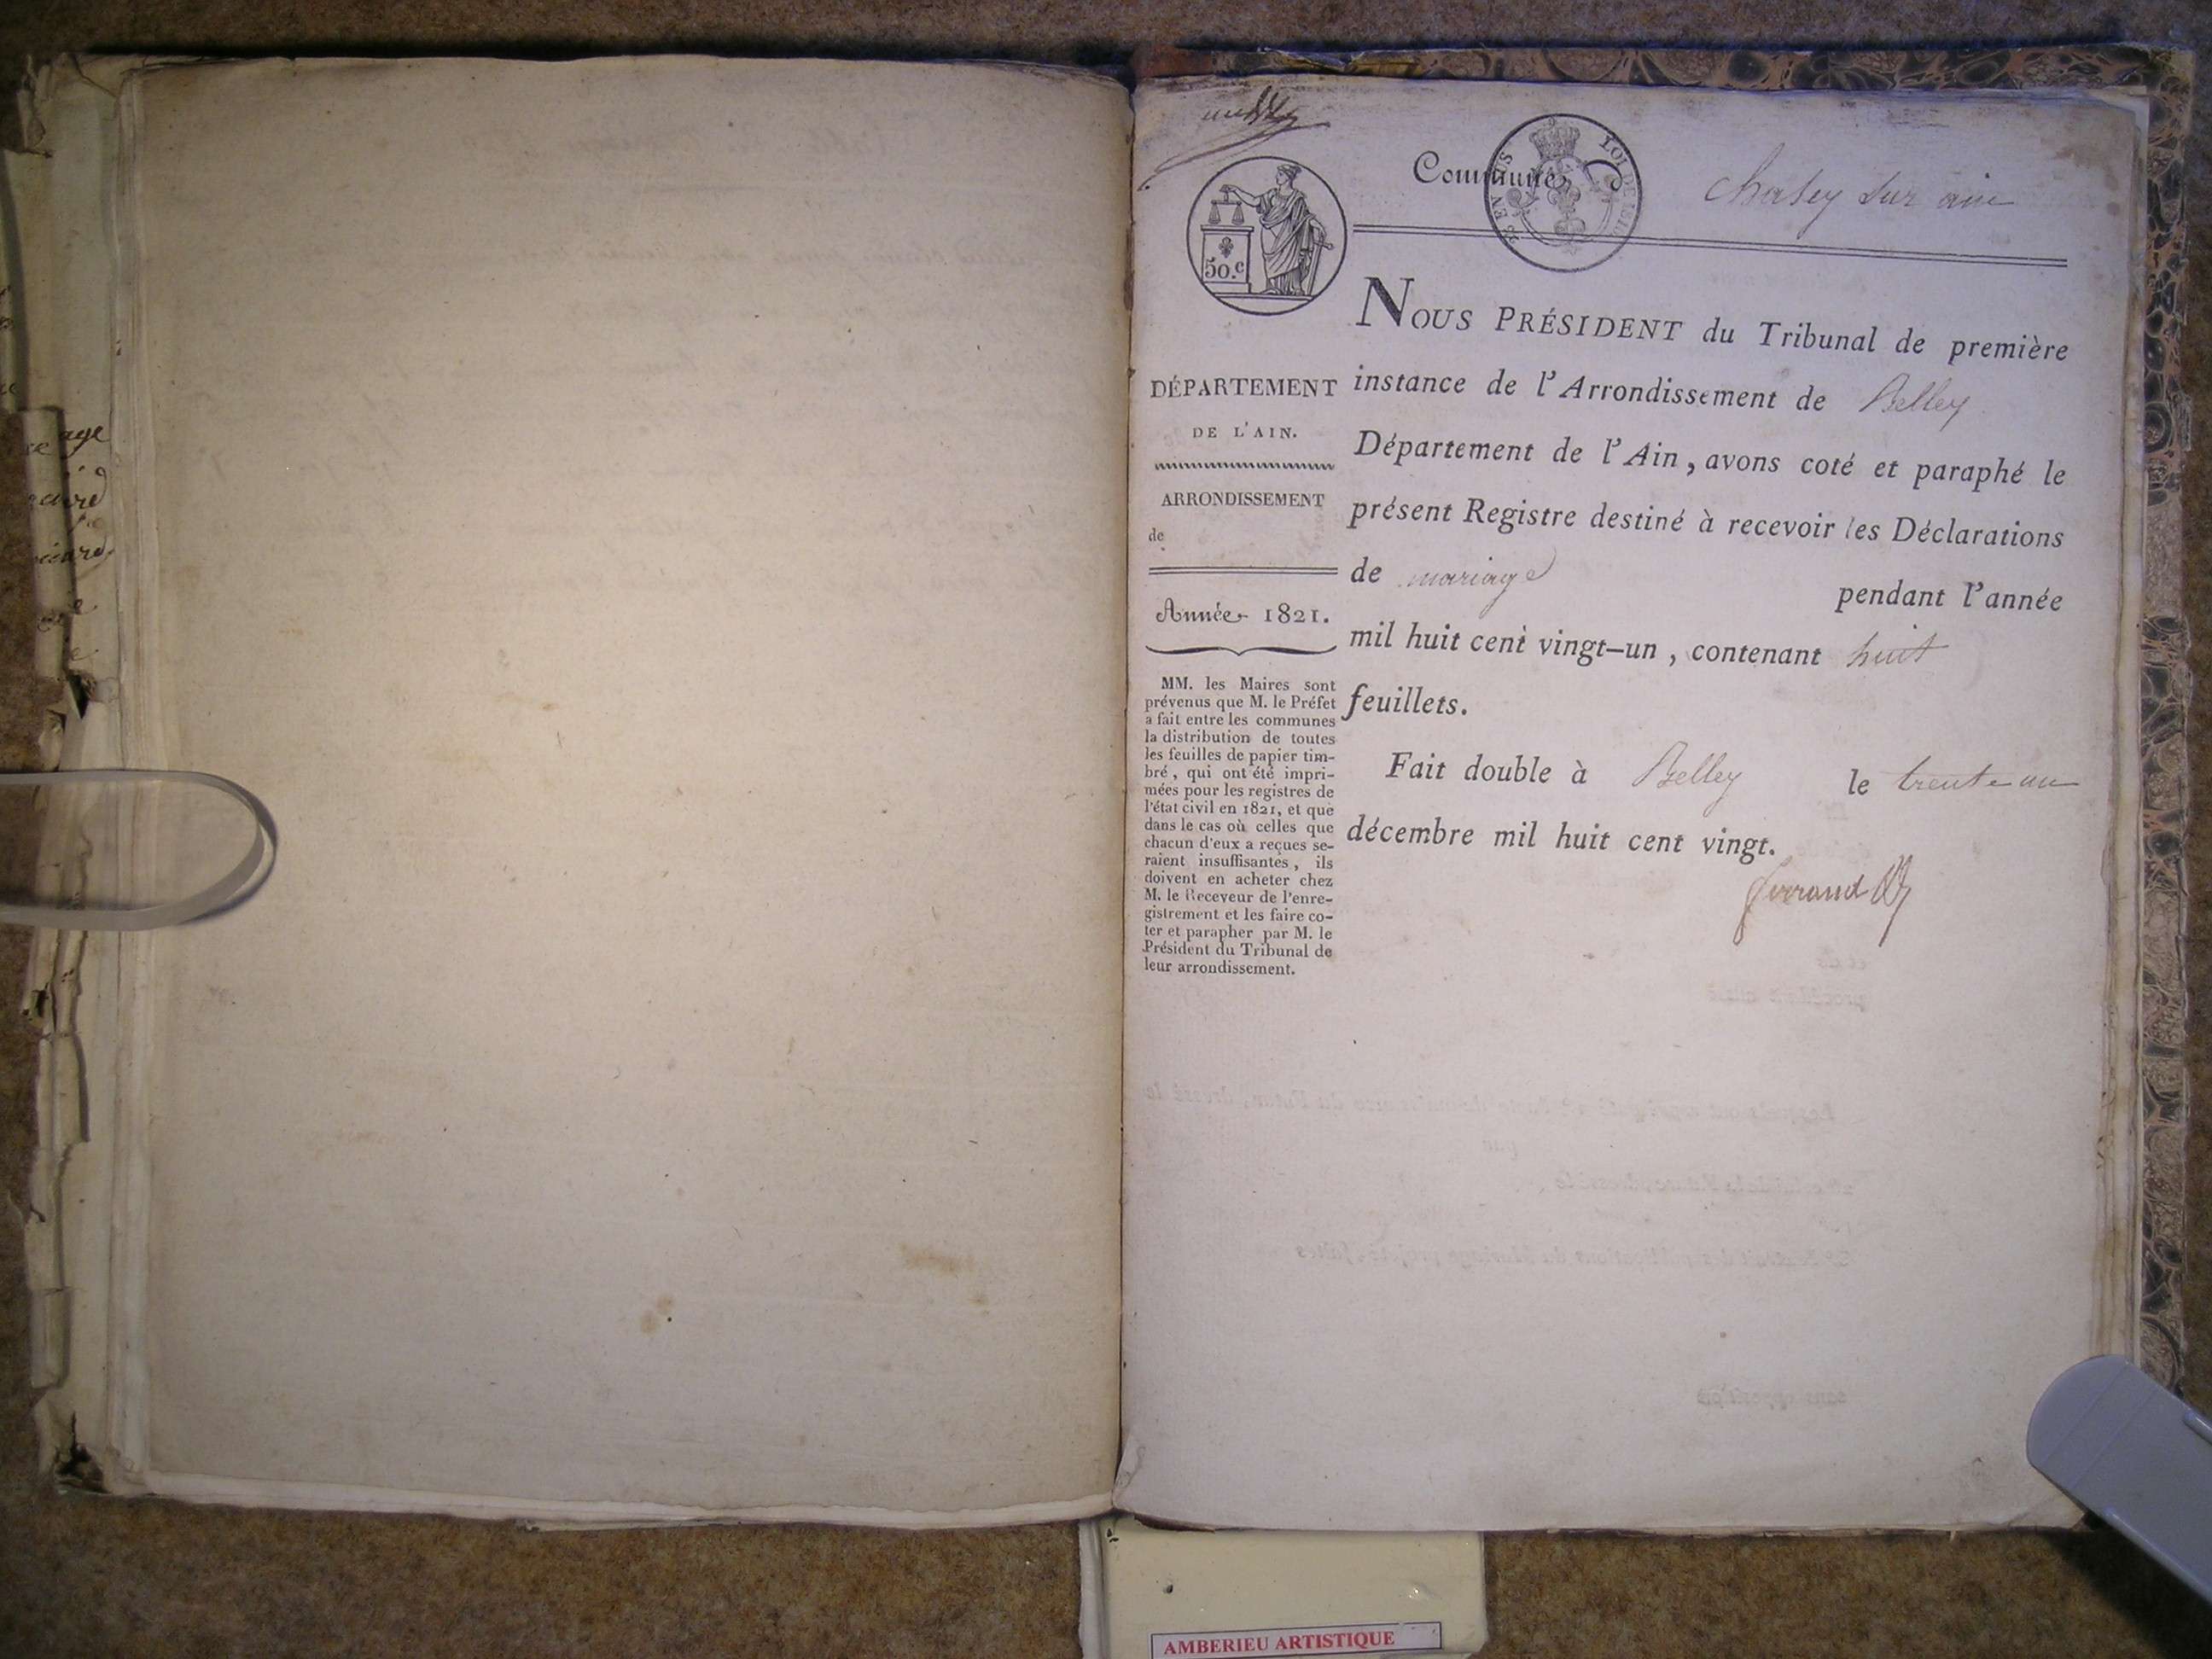 age
Commune
LOI DE 181
chasey sur ain
50.c
NOUS PRÉSIDENT du Tribunal de première
instance de l'Arrondissement de Belley
Département de l'Ain, avons coté et paraphé le
présent Registre destiné à recevoir les Déclarations
de mariage pendant l'année
mil huit cent vingt-un, contenant huit
feuillets.
Fait double à Belley le trente un
décembre mil huit cent vingt.
DÉPARTEMENT
DE L'AIN.
ARRONDISSEMENT
de
Année 1821.
MM. les Maires sont
prévenus que M. le Préfet
a fait entre les communes
la distribution de toutes
les feuilles de papier tim-
bré, qui ont été impri-
mées pour les registres de
l'état civil en 1821, et que
dans le cas où celles que
chacun d'eux a reçues se-
raient insuffisantes, ils
doivent en acheter chez
M. le Receveur de l'enre-
gistrement et les faire co-
ter et parapher par M. le
Président du Tribunal de
leur arrondissement.
AMBERIEU ARTISTIQUE